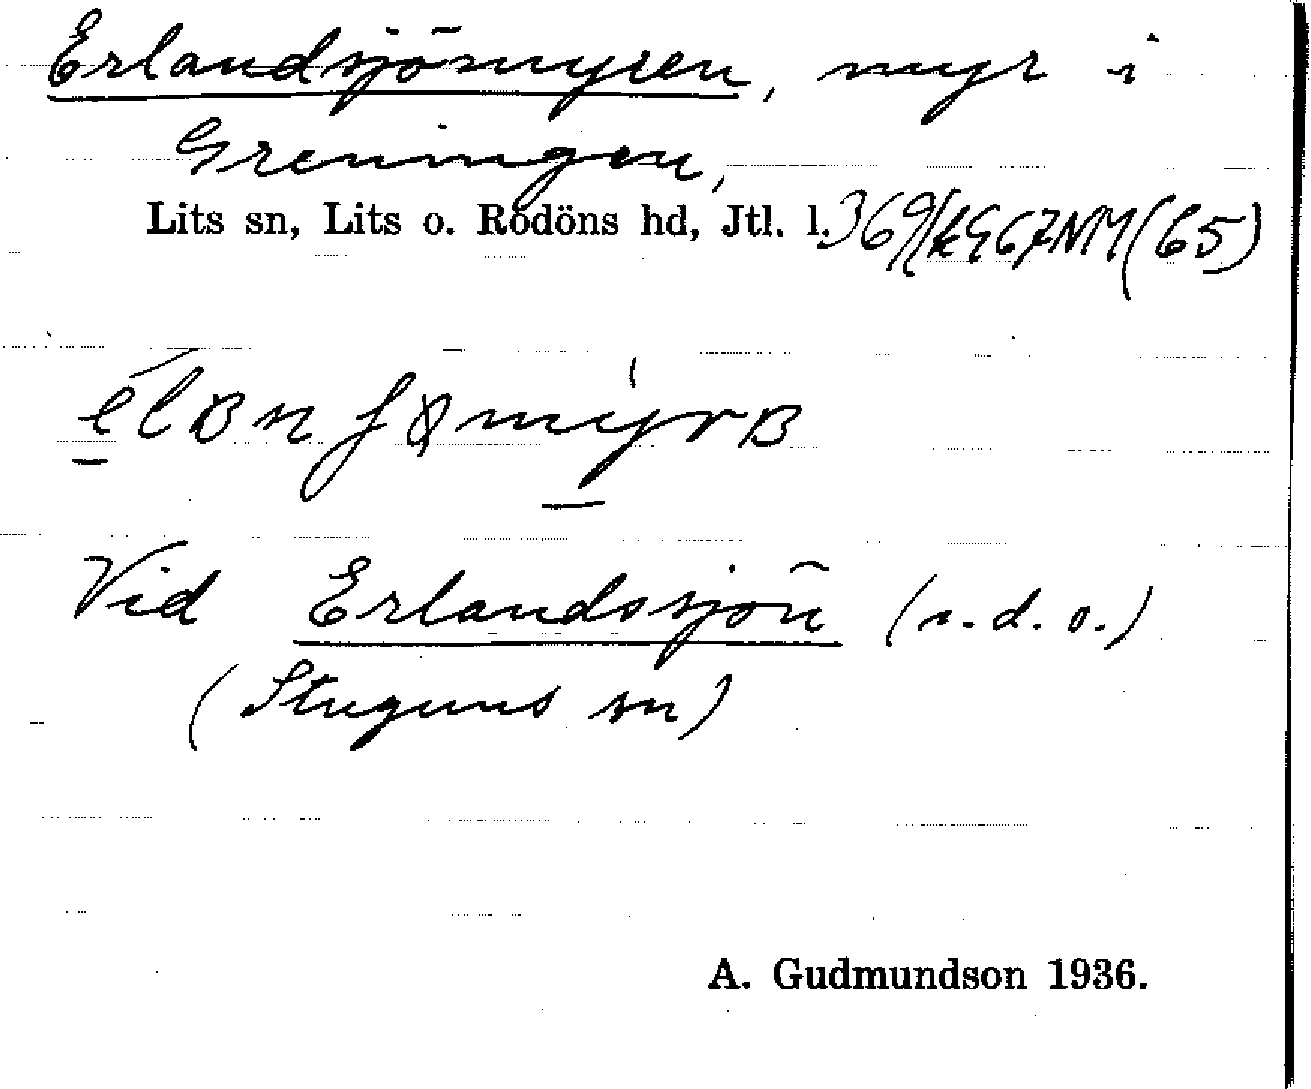 Erlandsjömyren, myr i
Greningen,
Lits sn, Lits o. Rödöns hd, Jtl. l.
Vid Erlandssjön (s.d.o.)
(Stuguns sn)
A. Gudmundson 1936.